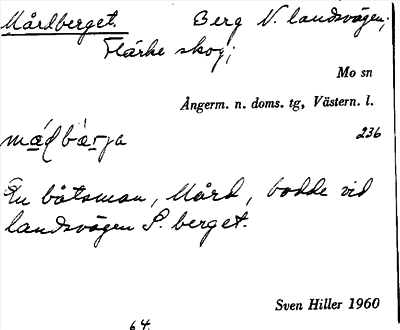 Mårdberget. Berg N. landsvägen;
Flärke skog;
Mo sn
Ångerm. n. doms. tg, Västern. l.
236
En båtsman, Mård, bodde vid
landsvägen S. berget.
Sven Hiller 1960
64.